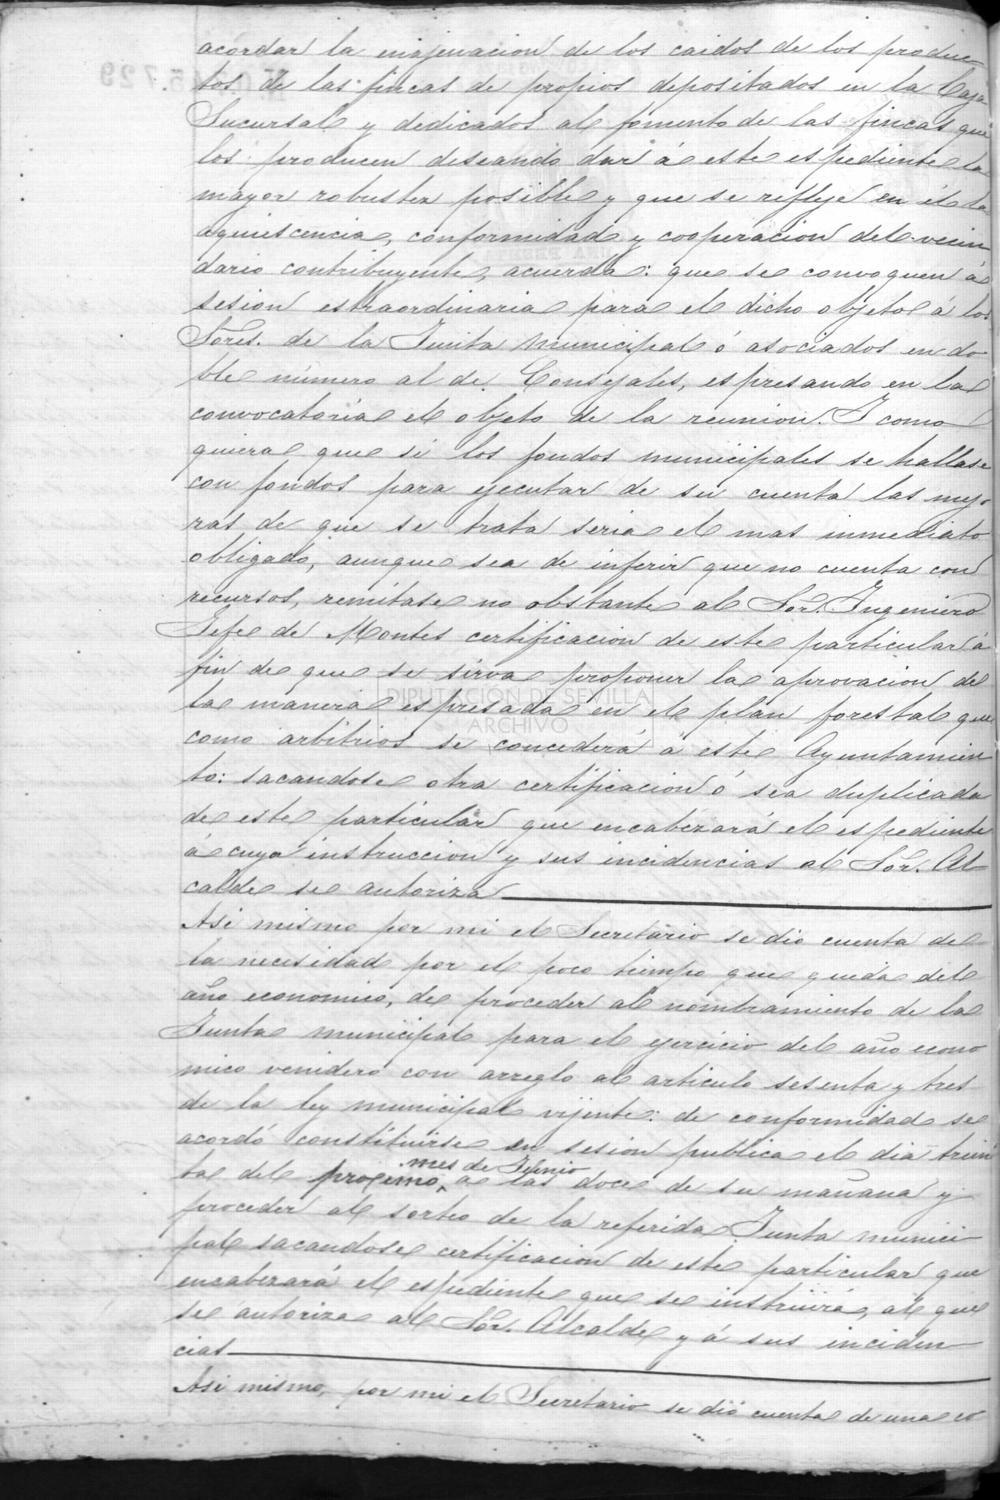 acordar la enajenacion de los caidos de los produc-
tos de las fincas de propios depositados en la Caja
Sucursal y dedicados al fomento de las fincas que
los producen deseando dar á este espediente la
mayor robustez posible y que se refleje en él la
aquiescencia, conformidad y cooperacion del vecin
dario contribuyente, acuerda: que se convoquen á
sesion estraordinaria para el dicho objeto á los
Sores. de la Junta municipal ó asociados en do
ble número al de Consejales, espresando en la
convocatoria el objeto de la reunion. Y como
quiera que si los fondos municipales se hallase
con fondos para ejecutar de su cuenta las mejo
ras de que se trata seria el mas inmediato
obligado, aunque sea de inferir que no cuenta con
recursos, remitase no obstante al Sor. Ingeniero
Jefe de Montes certificacion de este particular á
fin de que se sirva proponer la aprovacion de
la manera espresada en el plan forestal que
como arbitrios se concederá a este Ayuntamien
to: sacandose otra certificacion ó sea duplicada
de este particular que encabezará el espediente
á cuya instruccion y sus incidencias al Sor. Al-
calde se autoriza
Asi mismo por mi el Secretario se dio cuenta de
la necesidad por el poco tiempo que queda del
año economico, de proceder al nombramiento de la
Junta municipal para el ejercicio del año econo
mico venidero con arreglo al articulo sesenta y tres
de la ley municipal vijente: de conformidad se
acordó constituirse en sesion publica el dia trein
mes de Junio
ta del procsimo, a las doce de su mañana y
proceder al sorteo de la referida Junta munici
pal sacandose certificacion de este particular que
encabezará el espediente que se instruirá, al que
se autoriza al Sor. Alcalde y á sus inciden
cias
Asi mismo, por mi el Secretario se dió cuenta de una co
DIPUTACIÓN DE SEVILLA
ARCHIVO